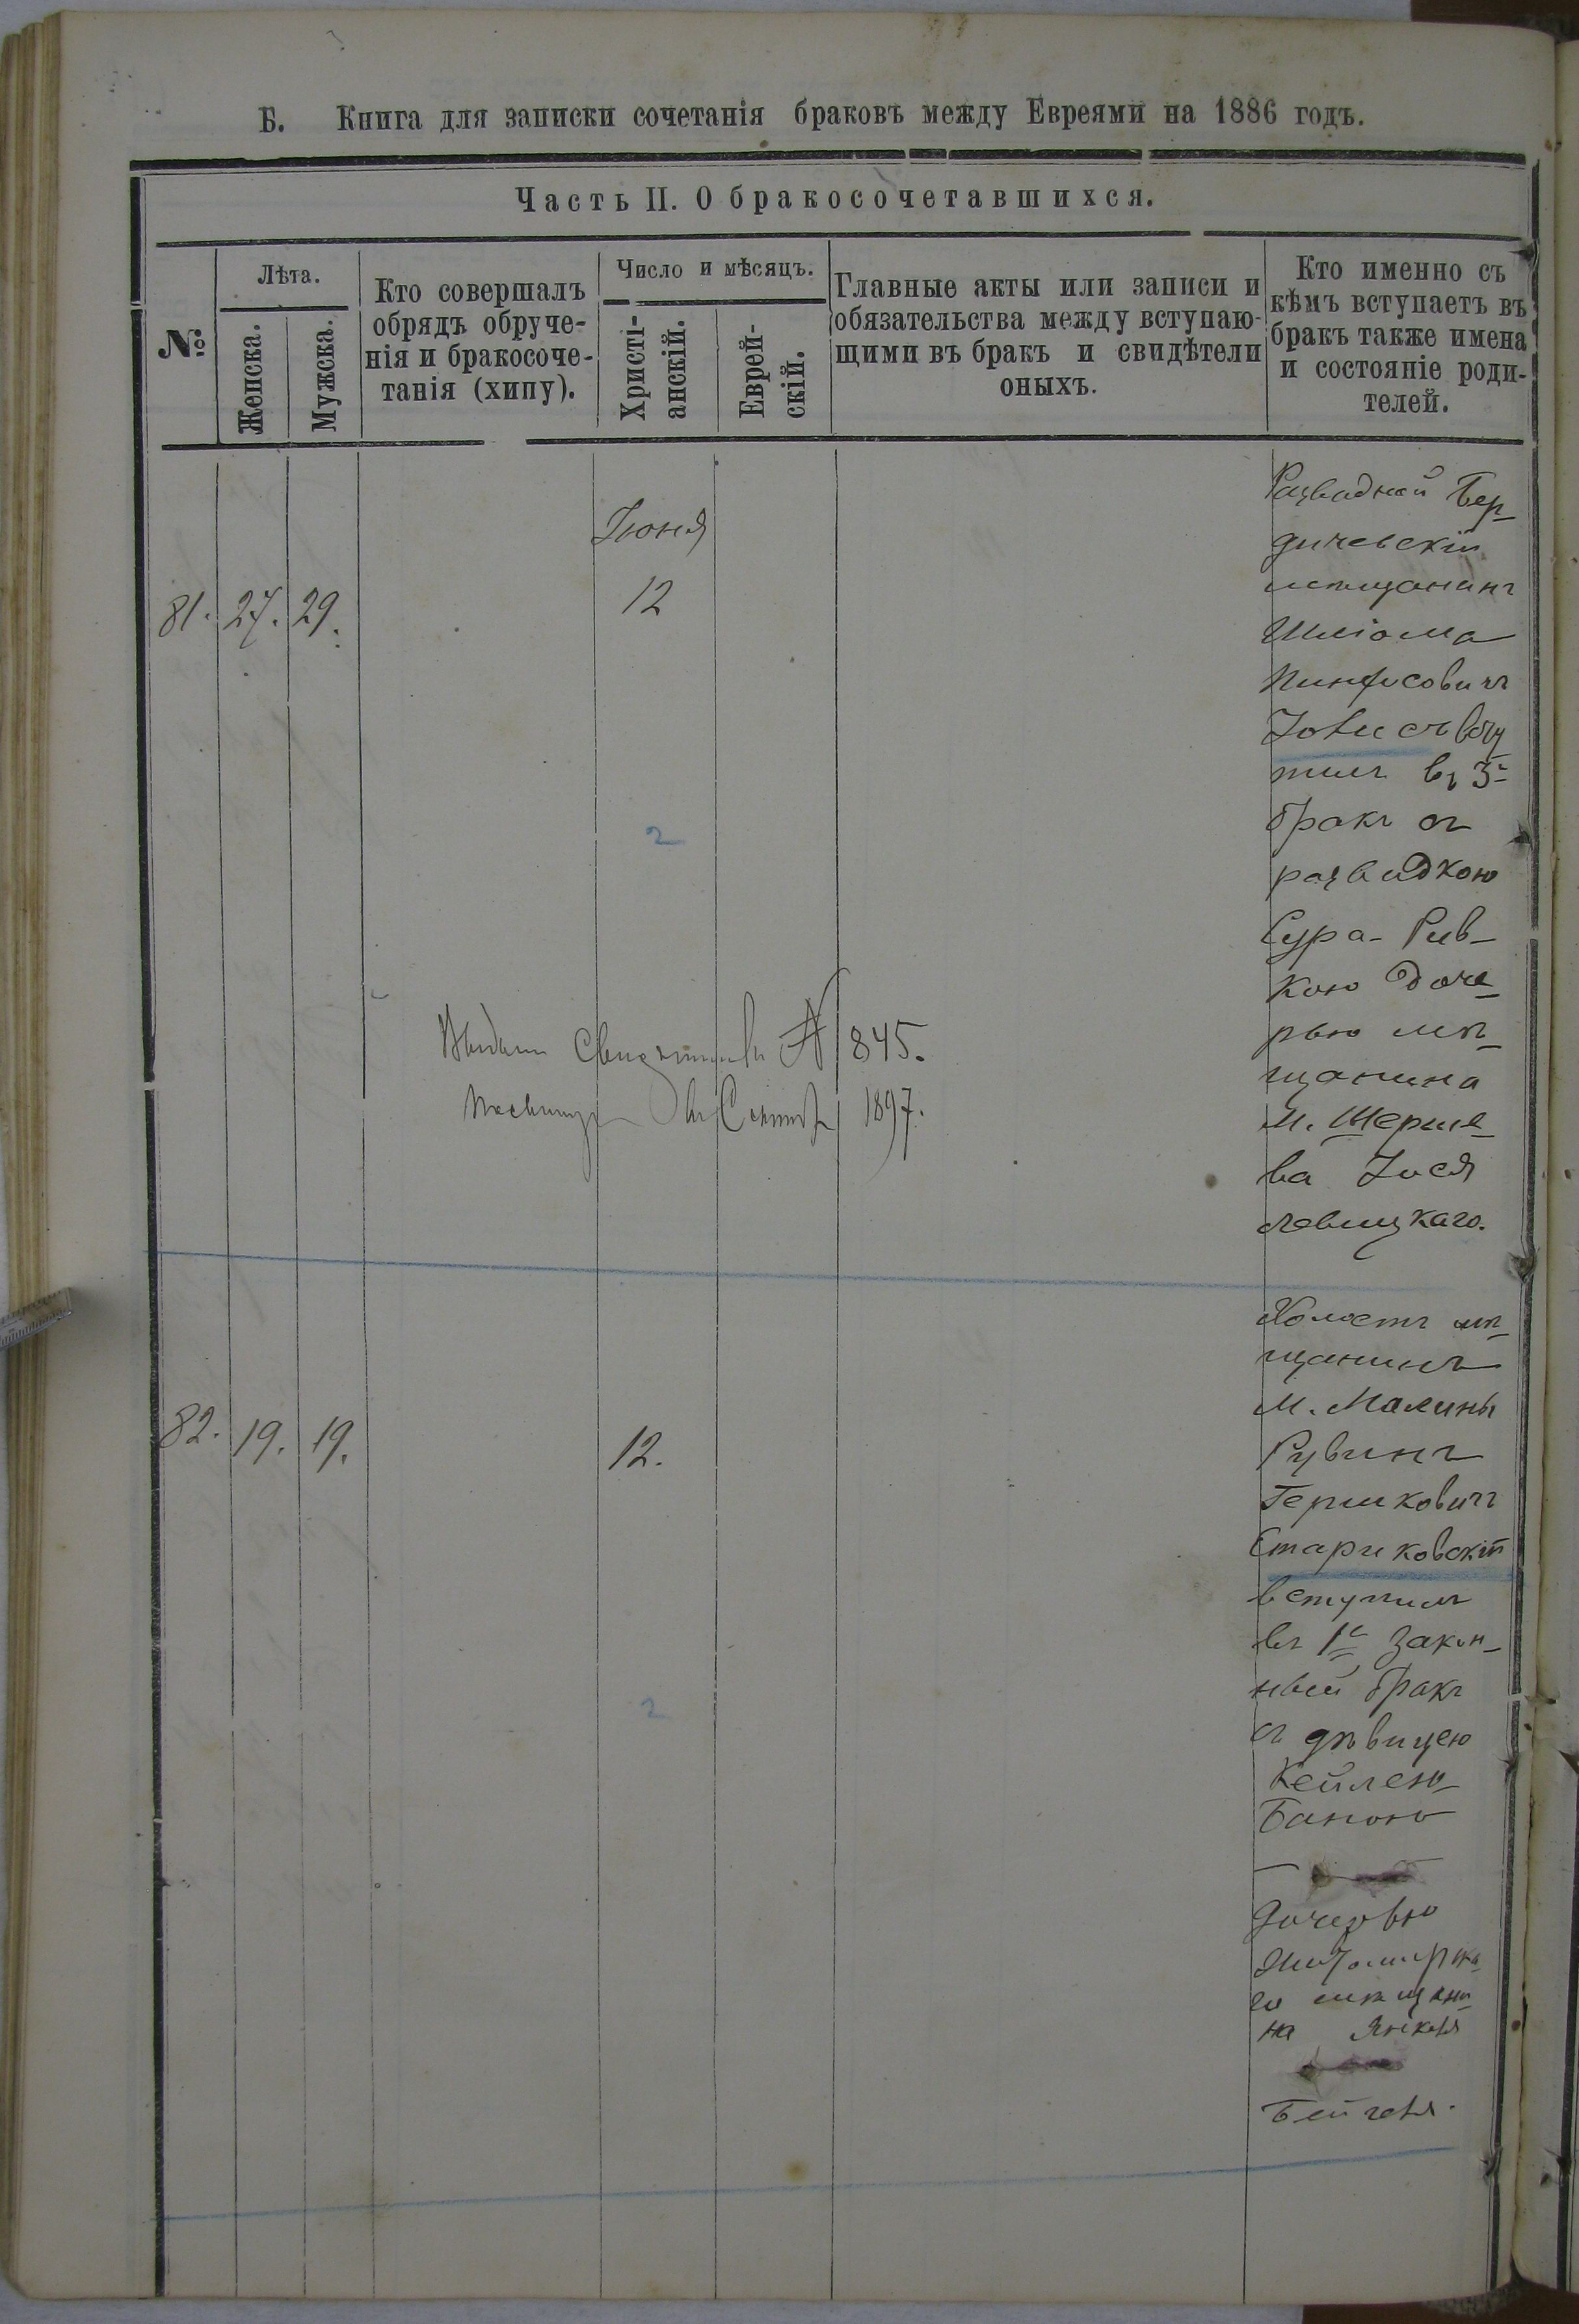 Б. Книга для записки сочетанія браковъ между Евреями на 1886 годъ.
Часть II. О бракосочетавшихся.
№
Лѣта.
Женска.
Мужска.
Кто совершалъ
обрядъ обруче-
нія и бракосоче-
танія (хипу).
Число и мѣсяцъ.
Христі-
анскій.
Еврей-
скій.
Главные акты или записи и
обязательства между вступаю-
щими въ бракъ и свидѣтели
оныхъ.
Кто именно съ
кѣмъ вступаетъ въ
бракъ также имена
и состояніе роди-
телей.
Іюня
81. 27. 29.
12
Разводной Бер-
дичевскій
мѣщанинъ
Шліома
Пинфусовичъ
всту
пилъ въ 3й
бракъ съ
разводкою
Сура-Рив-
кою доче-
рью мѣ-
щанина
м. Шерше-
ва Іося
Левицкаго.
2
№ 845.
1897.
82. 19. 19.
12.
Холостъ мѣ-
щанинъ
м. Малины
Рувинъ
Гершковичъ
Стариковскій
вступилъ
въ 1й закон-
ный бракъ
съ дѣвицею
Кейлею-
Баною
дочерью
Житомирска-
го мѣщани-
на Янкеля
2